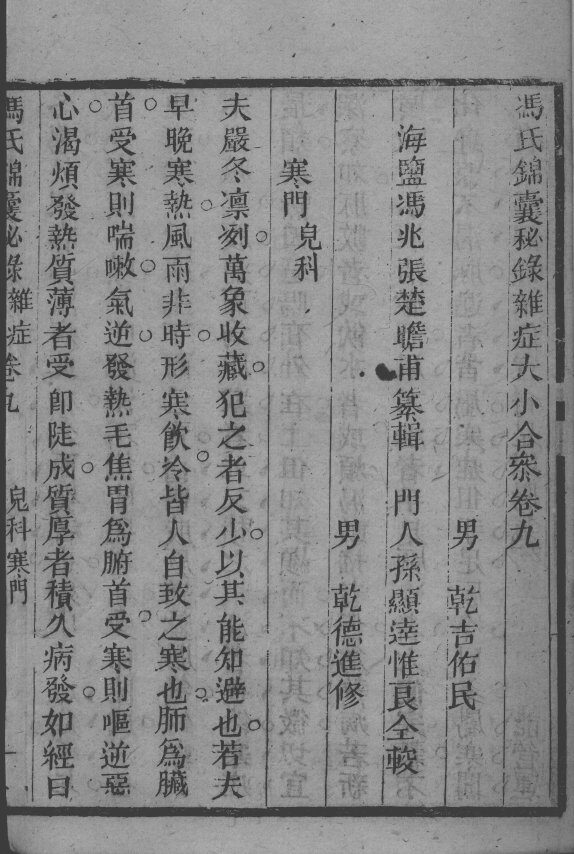 馮氏錦囊秘錄雜症大小合叅卷九
男　乾吉佑民
海鹽馮兆張楚瞻甫纂輯　門人孫顯達惟良仝較
男　乾德進修
寒門兒科
夫嚴冬凛冽萬象收藏犯之者反少以其能知避也若夫
早晚寒熱風雨非時形寒飲冷皆人自致之寒也肺為臟
首受寒則喘嗽氣逆發熱毛焦胃為腑首受寒則嘔逆惡
心渴煩發熱質薄者受卽陡成質厚者積久病發如經曰
馮氏錦囊秘錄雜症卷九　兒科寒門